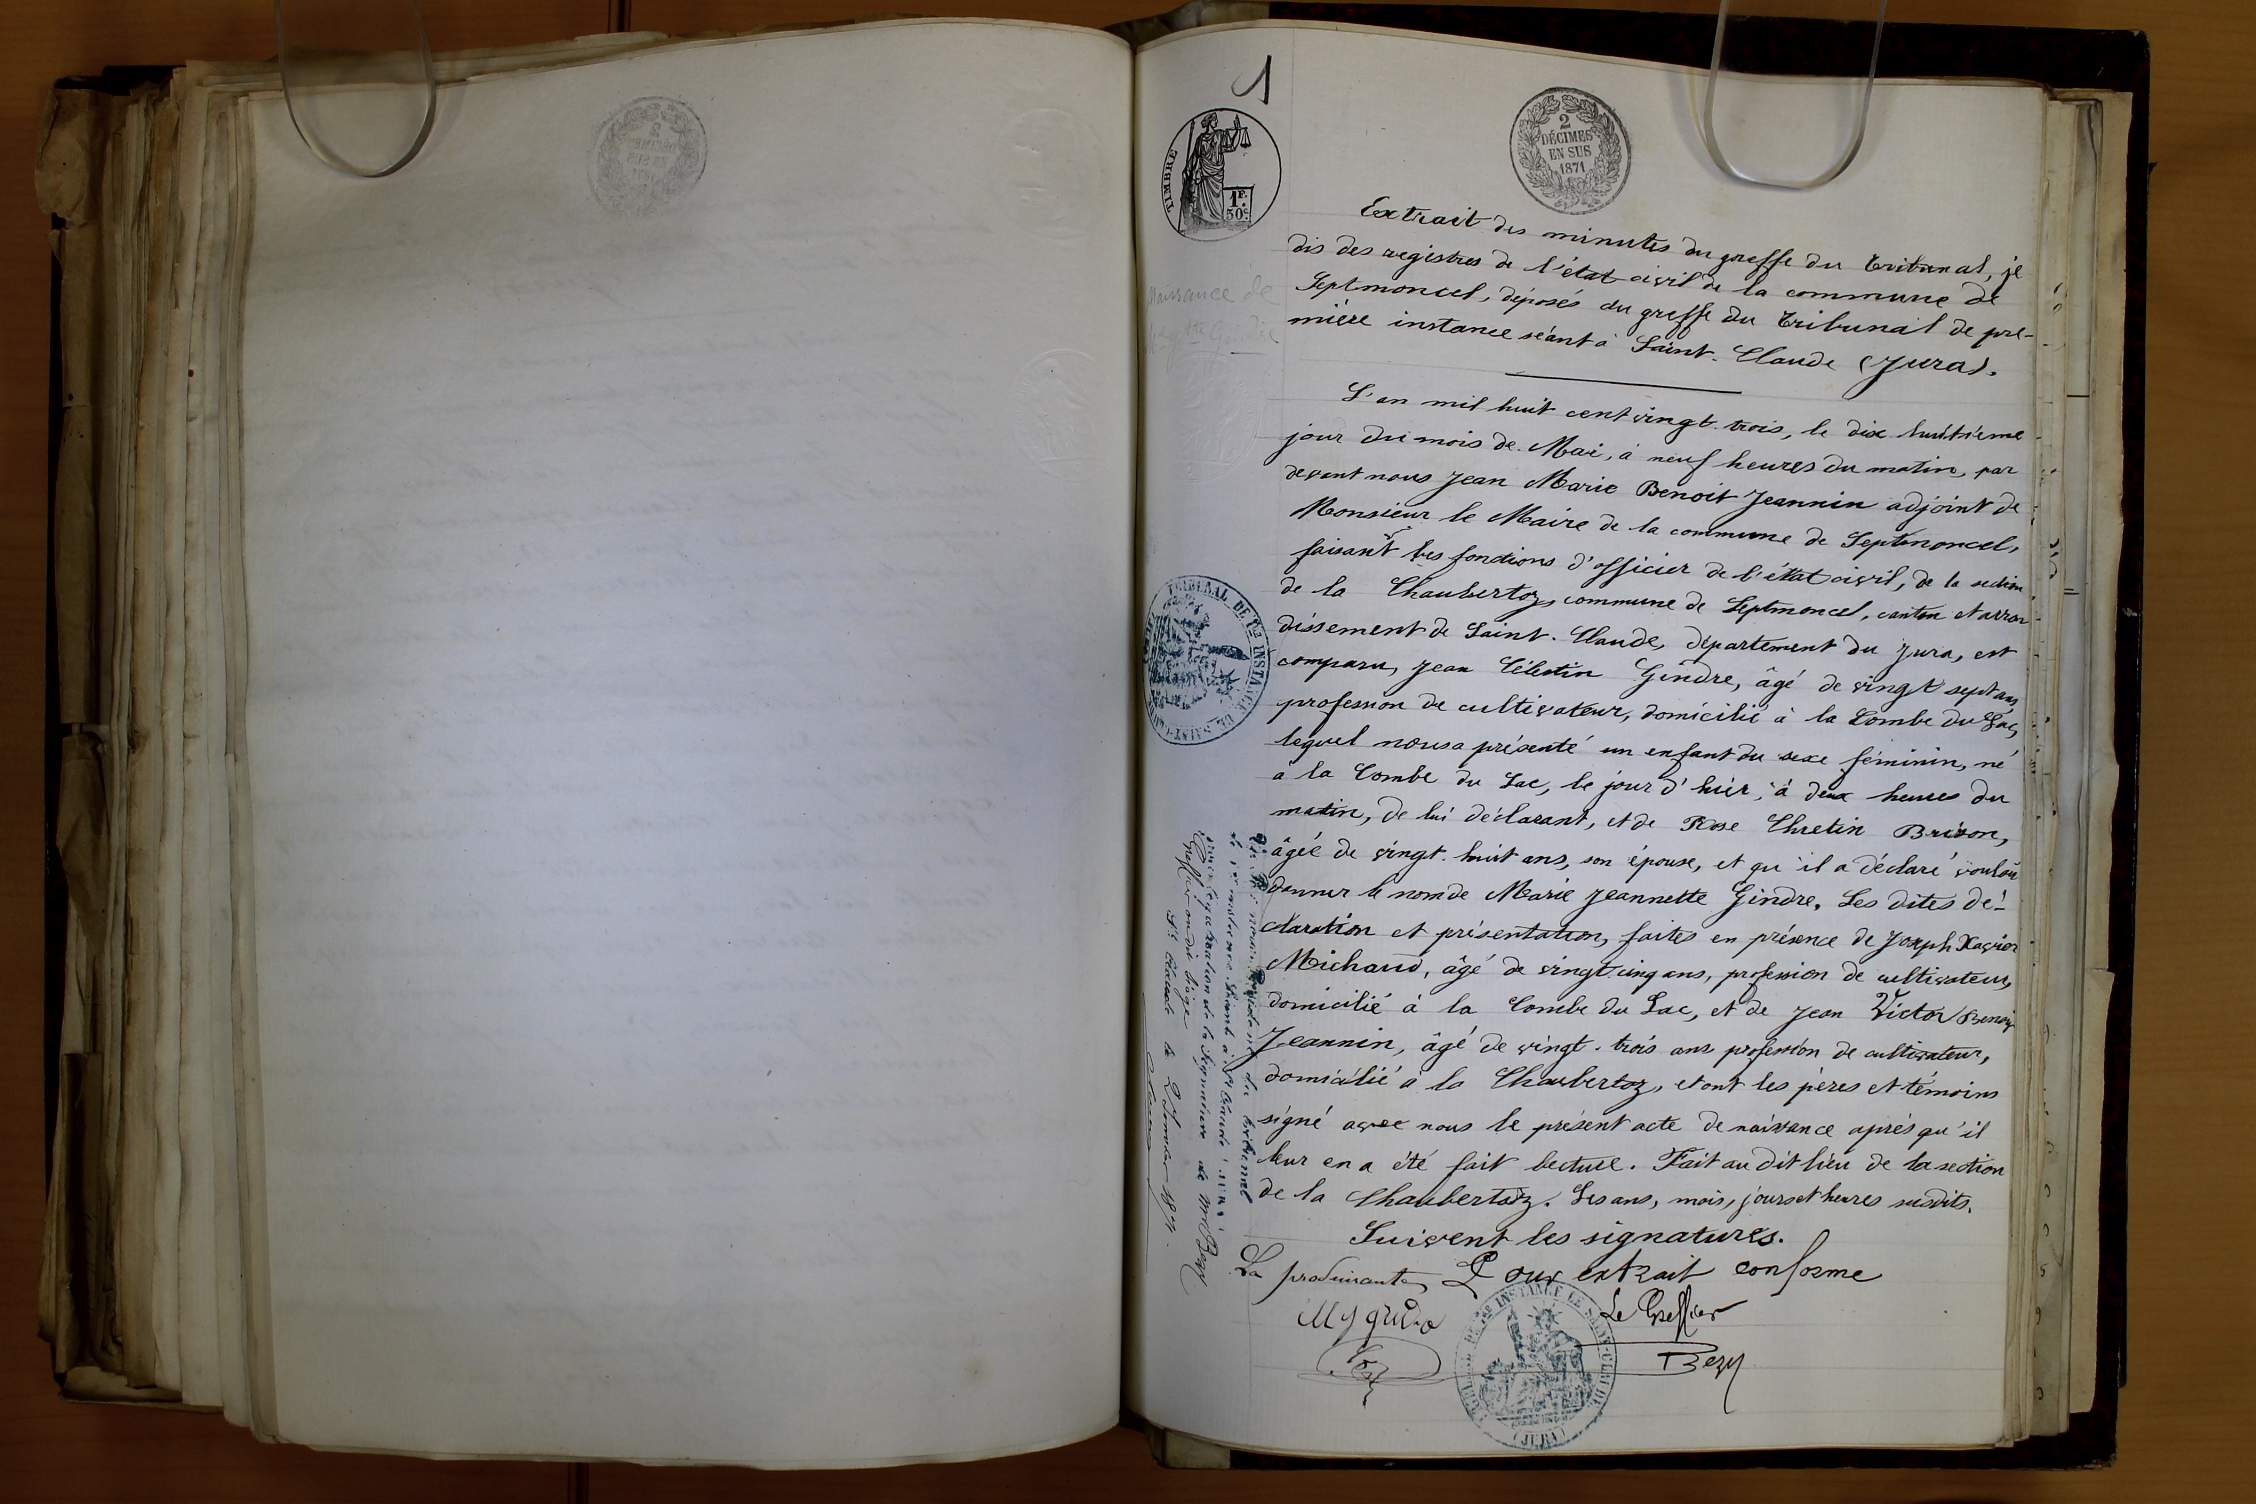 1
TIMBRE
1F.
50c
2
DÉCIMES
EN SUS
1871
Extrait des minutes du greffe du tribunal, je
dis des registres de l'état civil de la commune de
Septmoncel, déposés au greffe du tribunal de pre-
mière instance séant à Saint-Claude (Jura).
Naissance de
L'an mil huit cent vingt-trois, le dix huitième
jour du mois de Mai, à neuf heures du matin, par
devant nous Jean Marie Benoit Jeannin adjoint de
Monsieur le Maire de la commune de Septmoncel,
faisant les fonctions d'officier de l'état civil, de la section
de la Chaubertoz, commune de Septmoncel, canton et arron
dissement de Saint-Claude, département du Jura, est
comparu, Jean Célestin Gindre, âgé de vingt sept ans
profession de cultivateur, domicilié à la Combe du Lac,
lequel nous a présenté un enfant du sexe féminin, né
à la Combe du Lac, le jour d'hier, à deux heures du
matin, de lui déclarant, et de Rose Chretin Brison,
âgée de vingt-huit ans, son épouse, et qu'il a déclaré vouloir
donner le nom de Marie Jeannette Gindre. Les dites dé-
claration et présentation, faites en présence de Joseph Xavier
Michaud, âgé de vingt cinq ans, profession de cultivateur,
domicilié à la Combe du Lac, et de Jean Victor Benoit
Jeannin, âgé de vingt-trois ans profession de cultivateur,
domicilié à la Chaubertoz, et ont les pères et témoins
signé avec nous le présent acte de naissance après qu'il
leur en a été fait lecture. Fait au dit lieu de la section
de la Chaubertoz. Les ans, mois, jours et heures susdits.
Suivent les signatures.
La produisante, Pour extrait conforme
Le Greffier
Bezy
TRIBUNAL DE 1re INSTANCE DE SAINT-CLAUDE
(JURA)
TRIBUNAL DE 1re INSTANCE DE SAINT-CLAUDE
président du tribunal
de 1re instance séant à St Claude (Jura)
pour légalisation de la signature de Mr Bezy
greffier audit siège
St Claude le 2 Janvier 187